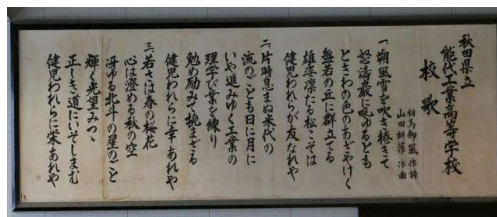 秋田県立
能代工業高等学校
校歌
相馬御風 作詩
山田耕筰 作曲
一、朔風雪を吹き捲きて
怒濤巌に吼ゆるとも
ときわの色のあざやけく
盤若の丘に群立てる
雄姿凛たる松こそは
健児われらが友なれや
二、片時息まぬ米代の
流のごとも日に月に
いや進みゆく工業の
理学び業を練り
勉め励みて撓まざる
健児われらに幸あれや
三、若さは春の梅花
心は澄める秋の空
冴ゆる北斗の星のごと
輝く光望みつゝ
正しき道にいそしまむ
健児われらに栄あれや